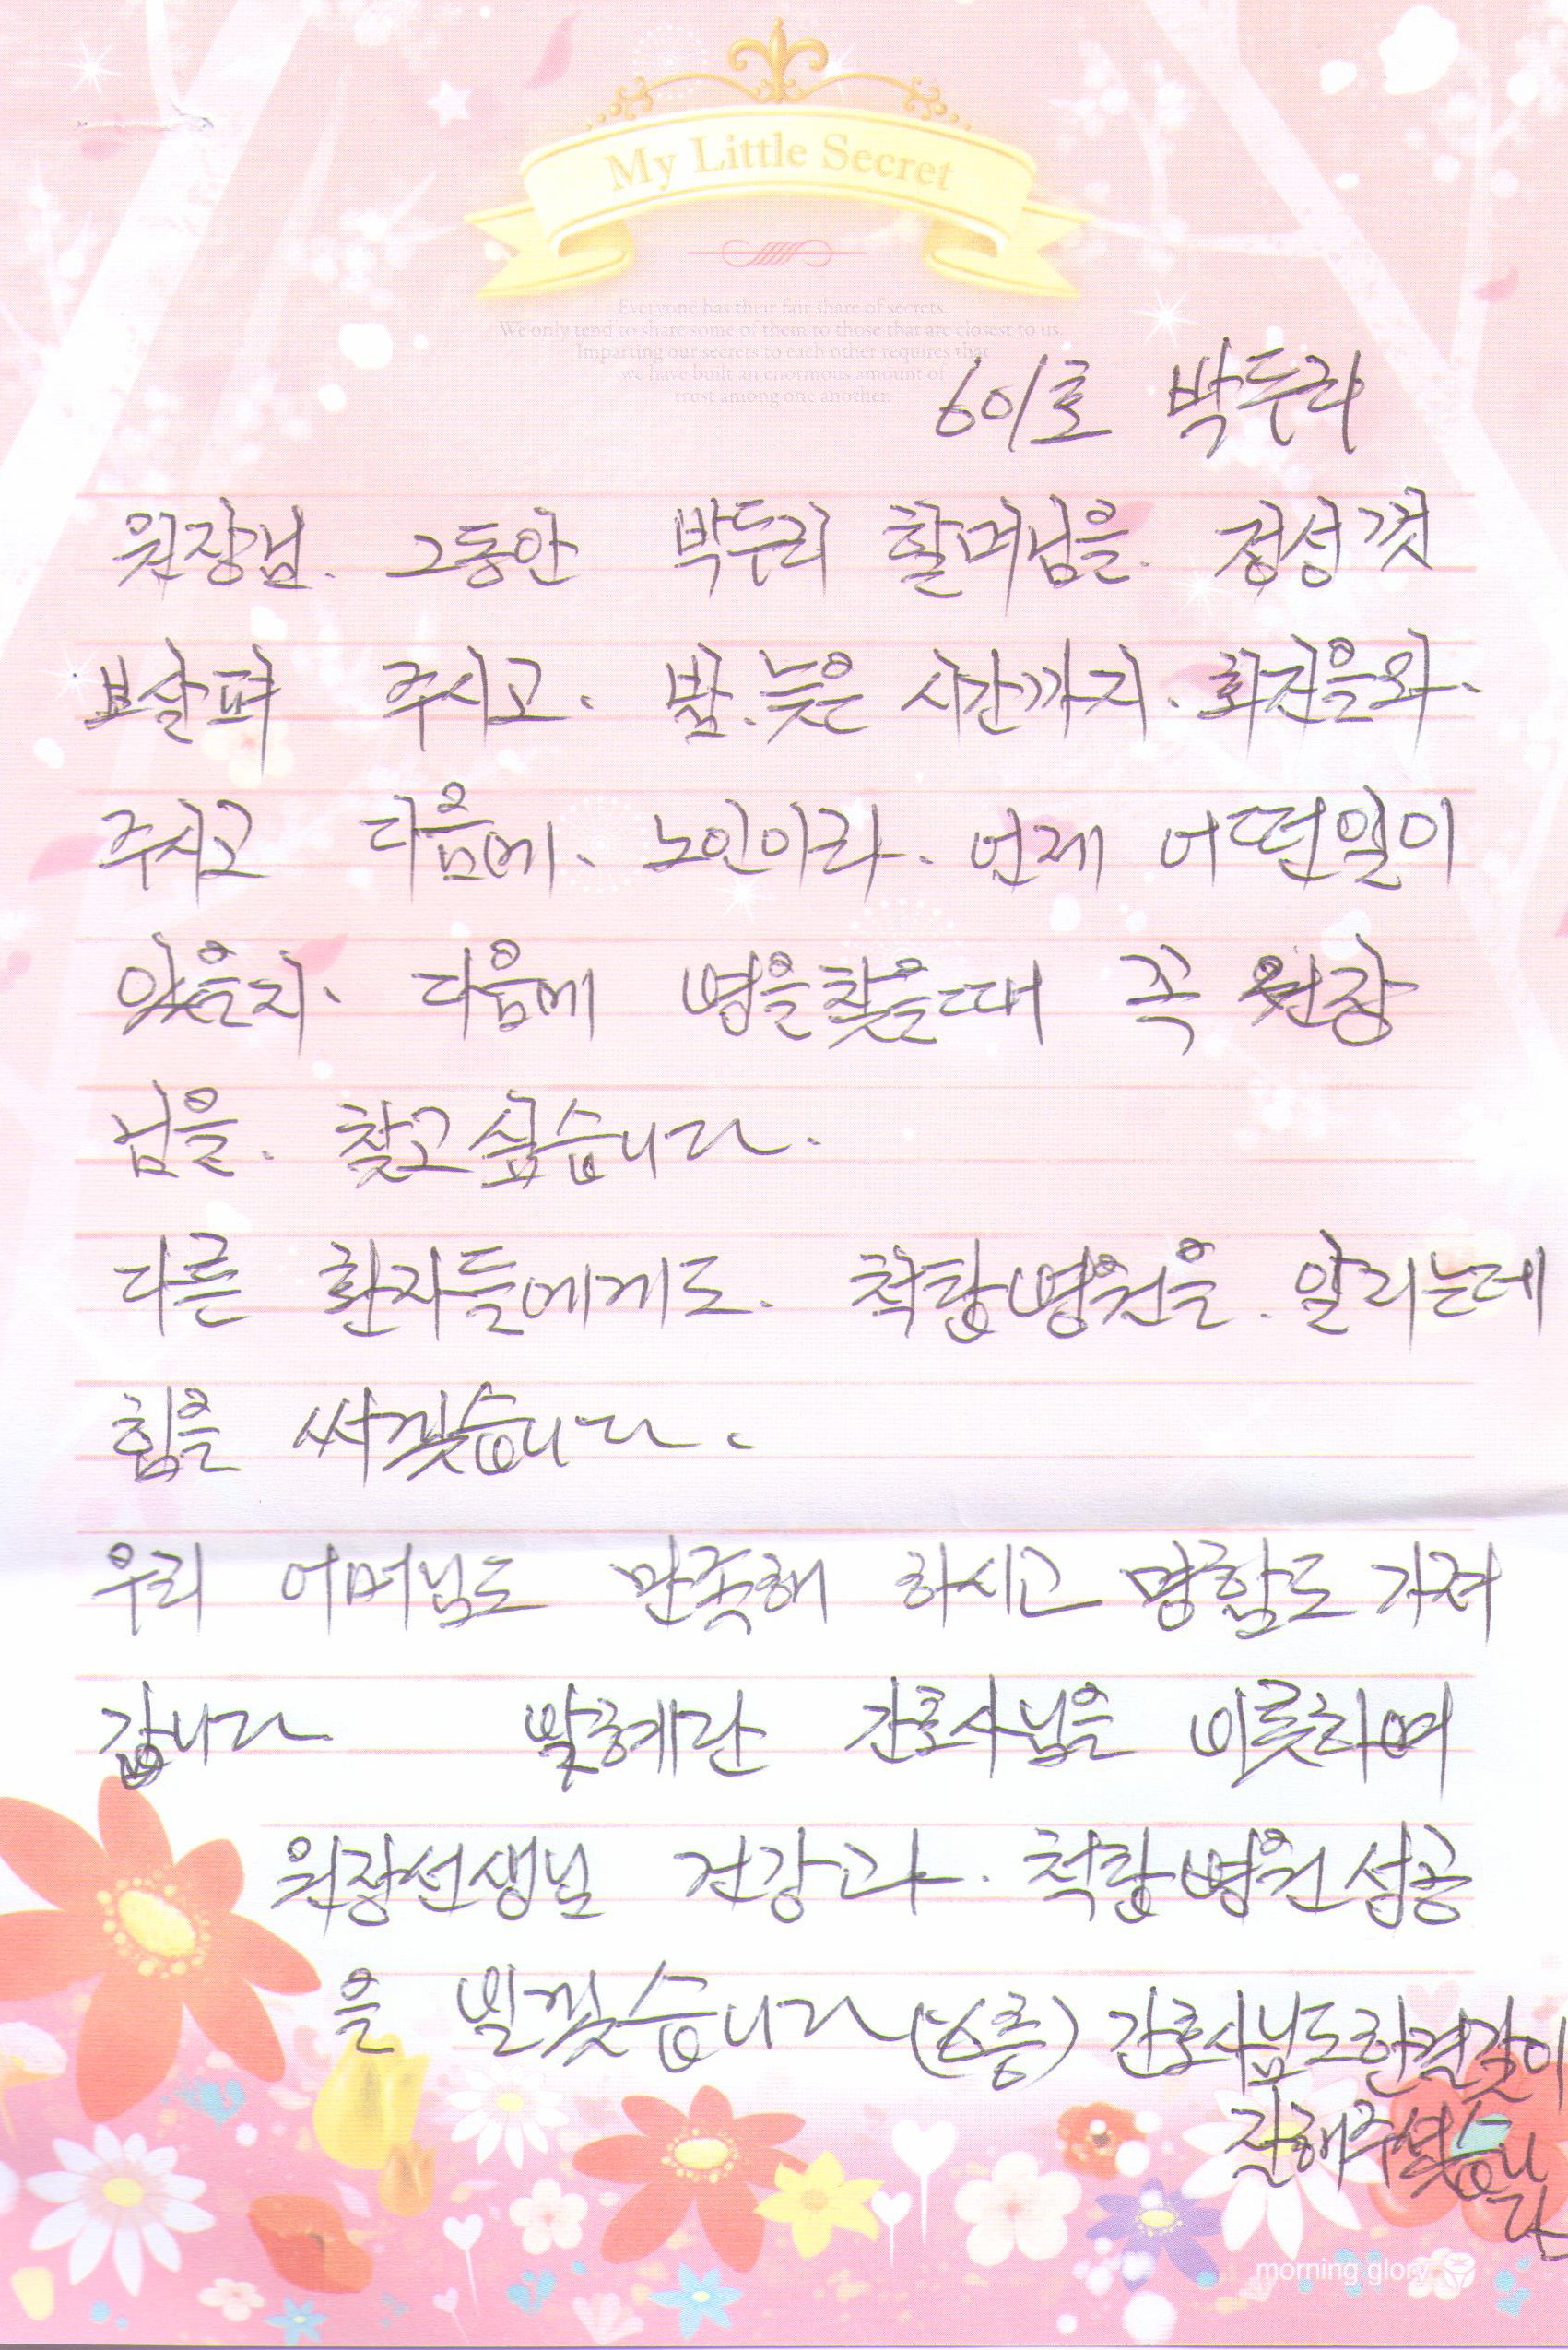 My Little Secret
Everyone has their fair share of secrets.
We only tend to share some of them to those that are closest to us.
Imparting our secrets to each other requires that
we have built an enormous amount of
trust among one another.
601호 박두리
원장님. 그동안 박두리 할머님을. 정성껏
보살펴 주시고. 밤.늦은 시간까지. 회진을와.
주시고 다음에. 노인이라. 언제 어떤일이
있을지. 다음에 병을찾을때 꼭 원장
님을. 찾고싶습니다.
다른 환자들에게도. 척탑병원을. 알리는데
힘을 써겠습니다.
우리 어머님도 만족해 하시고 명함도 가져
갑니다 간호사님을 비롯하여
원장선생님 건강과. 척탑병원 성공
을 빌겠습니다 (6층) 간호사님도한결같이
잘해주셨습니
다
morning glory